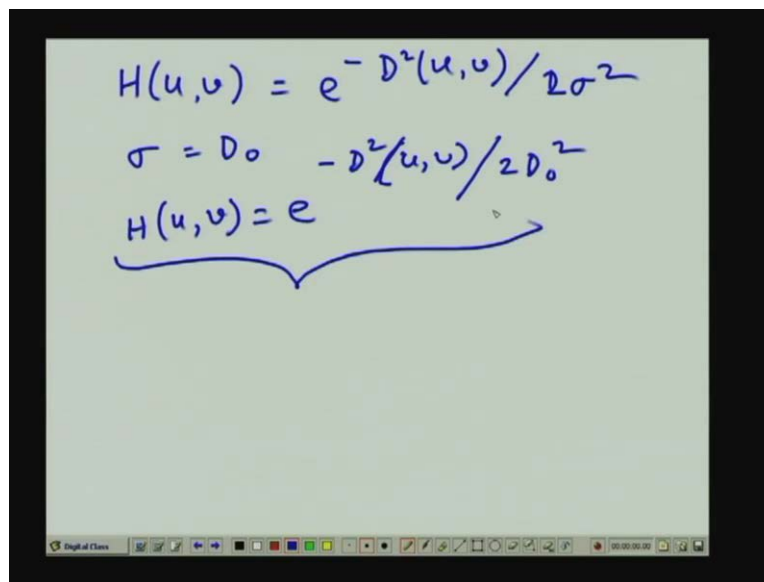 H(u,v) = e^{-D²(u,v)/2σ²}
σ = D₀
H(u,v) = e^{-D²(u,v)/2D₀²}
Digital Class 00:00:00.00